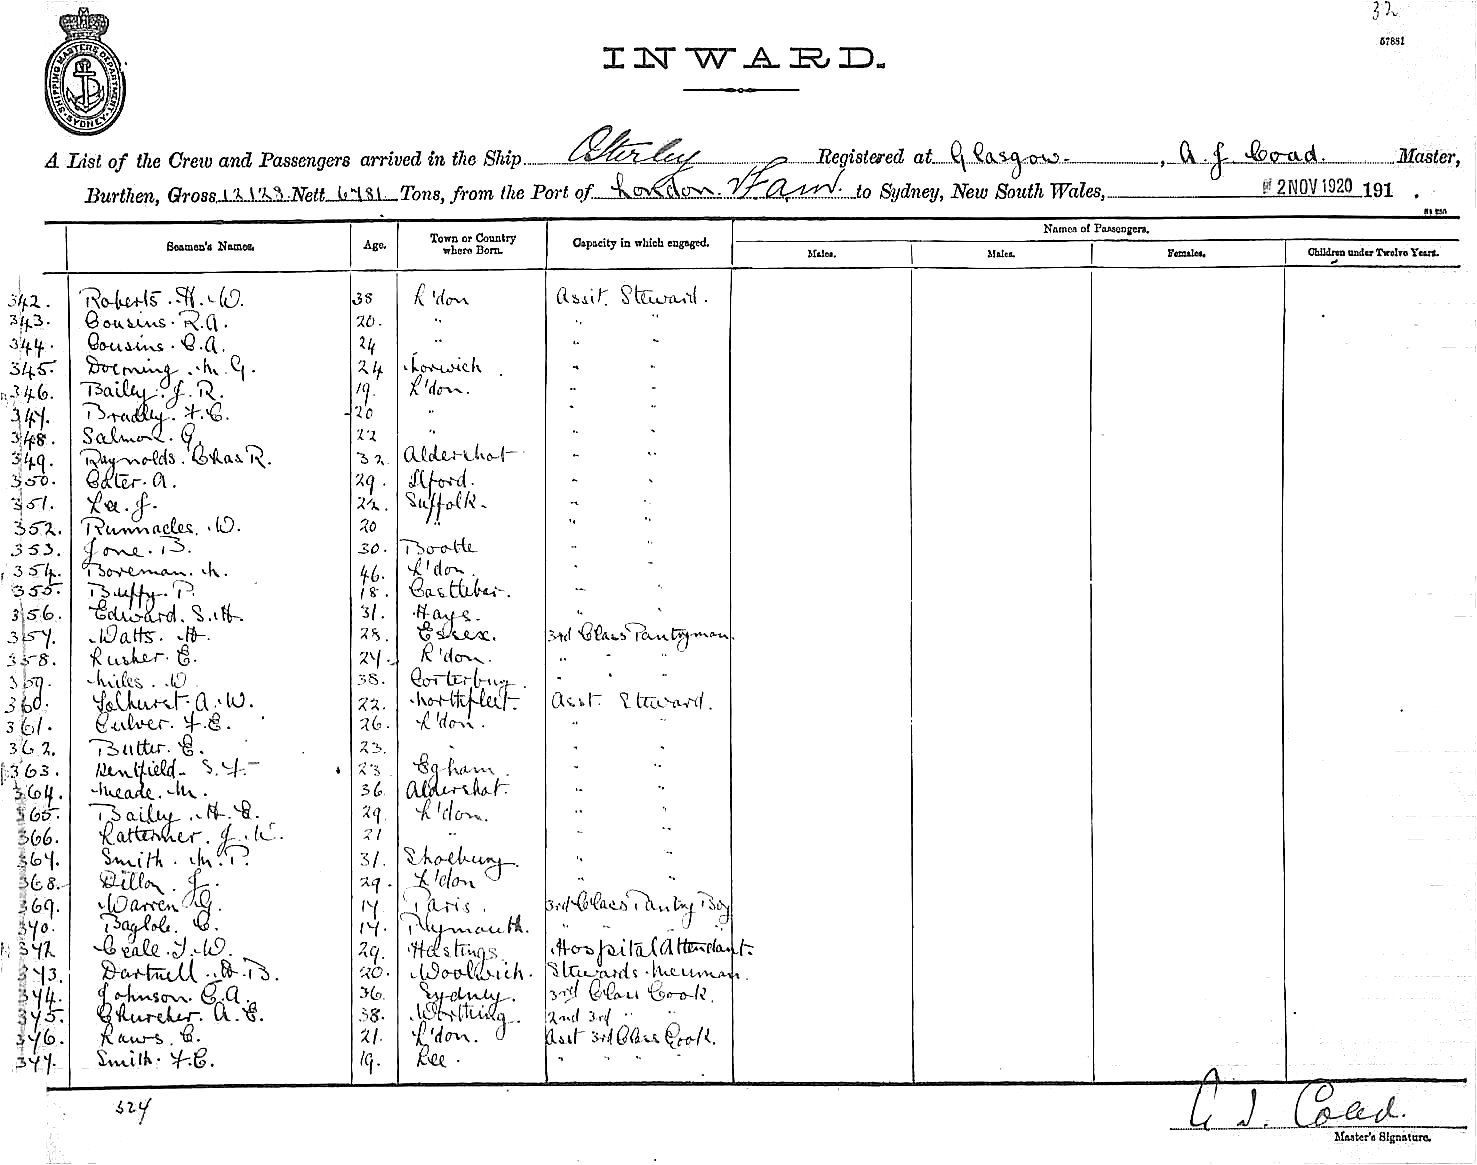 32
67881
SHIPPING MASTERS DEPARTMENT SYDNEY
INWARD.
A List of the Crew and Passengers arrived in the Ship Osterley Registered at Glasgow. , A J Coad. Master,
Burthen, Gross 12129 Nett 6781 Tons, from the Port of London. to Sydney, New South Wales, 2 NOV 1920 191 .
Seamen's Names. Age. Town or Country where Born. Capacity in which engaged. Names of Passengers.
Males. Males. Females. Children under Twelve Years.
342. Roberts. H. W. 38 L'don Assit. Steward.
343. Cousins. R.A. 20. " " "
344. Cousins. C.A. 24 " " "
345. M. G. 24 Norwich. " "
346. Bailey. J. R. 19. L'don. " "
347. Bradley. F.C. 20 " " "
348. Salmon. G. 22 " " "
349. Raynolds. Chas R. 32 Aldershot " "
350. Cater. A. 29. Ilford. " "
351. Lee. J. 22. Suffolk. " "
352. Runnacles. W. 20 " " "
353. Jone. B. 30. Bootle " "
354. Boreman. M. 46. L'don. " "
355. Buffy. P. 18. Castlebar. " "
356. Edward. S.H. 31. Hays. " "
357. Watts. H. 28. Essex. 3rd Class Pantryman.
358. Rusher. E. 24. L'don. " " "
359. Miles. W. 38. " "
360. Tolhurst. A. W. 22. Northfleet. Asst. Steward.
361. Culver. F.E. 26. L'don. " "
362. Butter. E. 23. " " "
363. Kentfield. S.F. 23 Egham. " "
364. Meade. M. 36. Aldershot. " "
365. Bailey. H. E. 29. L'don. " "
366. J. 21 " " "
367. Smith. M.P. 31. Shoebury. " "
368. Dillon. J. 29. L'don " "
369. Warren G. 17 Paris. 3rd Class Pantry Boy
370. Baglole. C. 17. Plymouth. " " "
372 Ceale. J. W. 29. Hastings. Hospital Attendant.
373. Dartnell. H. B. 20. Woolwich. Stewards. Messman.
374. Johnson. C.A. 36 Sydney. 3rd Class Cook.
375. Churcher. A. E. 38. Worthing. 2nd 3rd " "
376. Raws. C. 21. L'don. Asst 3rd Class Cook.
377. Smith. F.C. 19. Lee. " " "
324
A J. Coad.
Master's Signature.